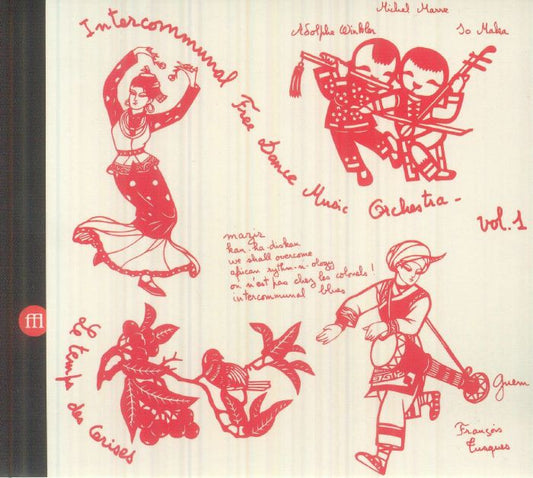 Michel Marre
Adolphe Winkler
Jo Maka
Intercommunal Free Dance Music Orchestra -
vol. 1
mazir
kan-ha-diskan
we shall overcome
african rythm-n-ology
on n'est pas chez les colonels !
intercommunal blues
ffl
Le temps des Cerises
Guem
François
Tusques